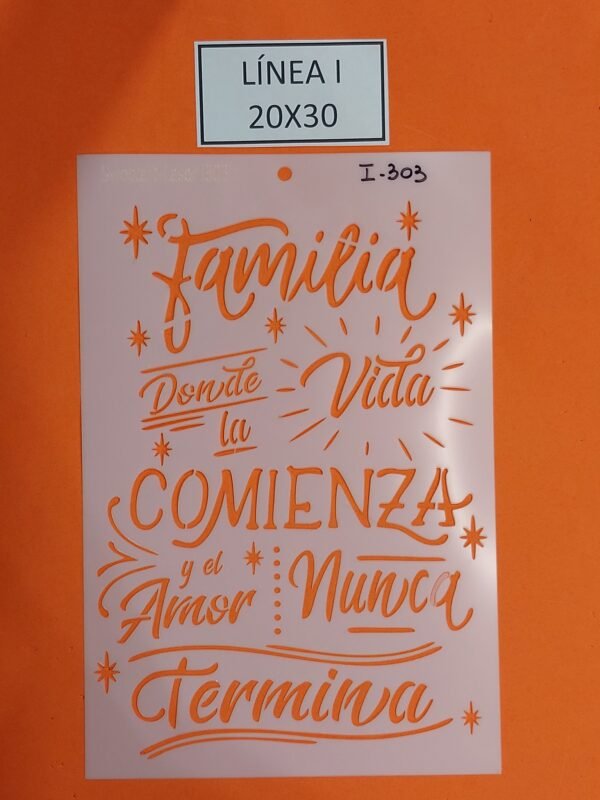 LÍNEA I
20X30
I-303
Familia
Donde la Vida
COMIENZA
y el Amor Nunca
Termina